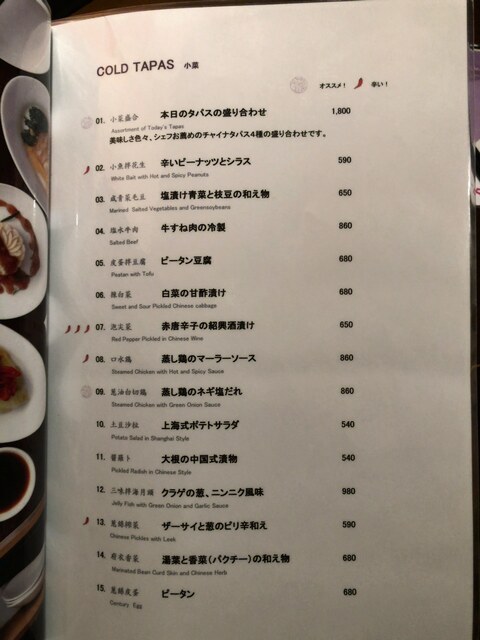 COLD TAPAS 小菜
オススメ! 辛い!
01. 小菜盛合 本日のタパスの盛り合わせ 1,800
Assortment of Today's Tapas
美味しさ色々、シェフお薦めのチャイナタパス4種の盛り合わせです。
02. 小魚拌花生 辛いピーナッツとシラス 590
White Bait with Hot and Spicy Peanuts
03. 咸青菜毛豆 塩漬け青菜と枝豆の和え物 650
Marined Salted Vegetables and Greensoybeans
04. 塩水牛肉 牛すね肉の冷製 860
Salted Beef
05. 皮蛋拌豆腐 ピータン豆腐 680
Peatan with Tofu
06. 辣白菜 白菜の甘酢漬け 680
Sweet and Sour Pickled Chinese cabbage
07. 泡尖菜 赤唐辛子の紹興酒漬け 650
Red Pepper Pickled in Chinese Wine
08. 口水鶏 蒸し鶏のマーラーソース 860
Steamed Chicken with Hot and Spicy Sauce
09. 葱油白切鶏 蒸し鶏のネギ塩だれ 860
Steamed Chicken with Green Onion Sauce
10. 土豆沙拉 上海式ポテトサラダ 540
Potato Salad in Shanghai Style
11. 醤蘿卜 大根の中国式漬物 540
Pickled Radish in Chinese Style
12. 三味拌海月頭 クラゲの葱、ニンニク風味 980
Jelly Fish with Green Onion and Garlic Sauce
13. 葱絲搾菜 ザーサイと葱のピリ辛和え 590
Chinese Pickles with Leek
14. 府衣香菜 湯葉と香菜(パクチー)の和え物 680
Marinated Bean Curd Skin and Chinese Herb
15. 葱絲皮蛋 ピータン 680
Century Egg